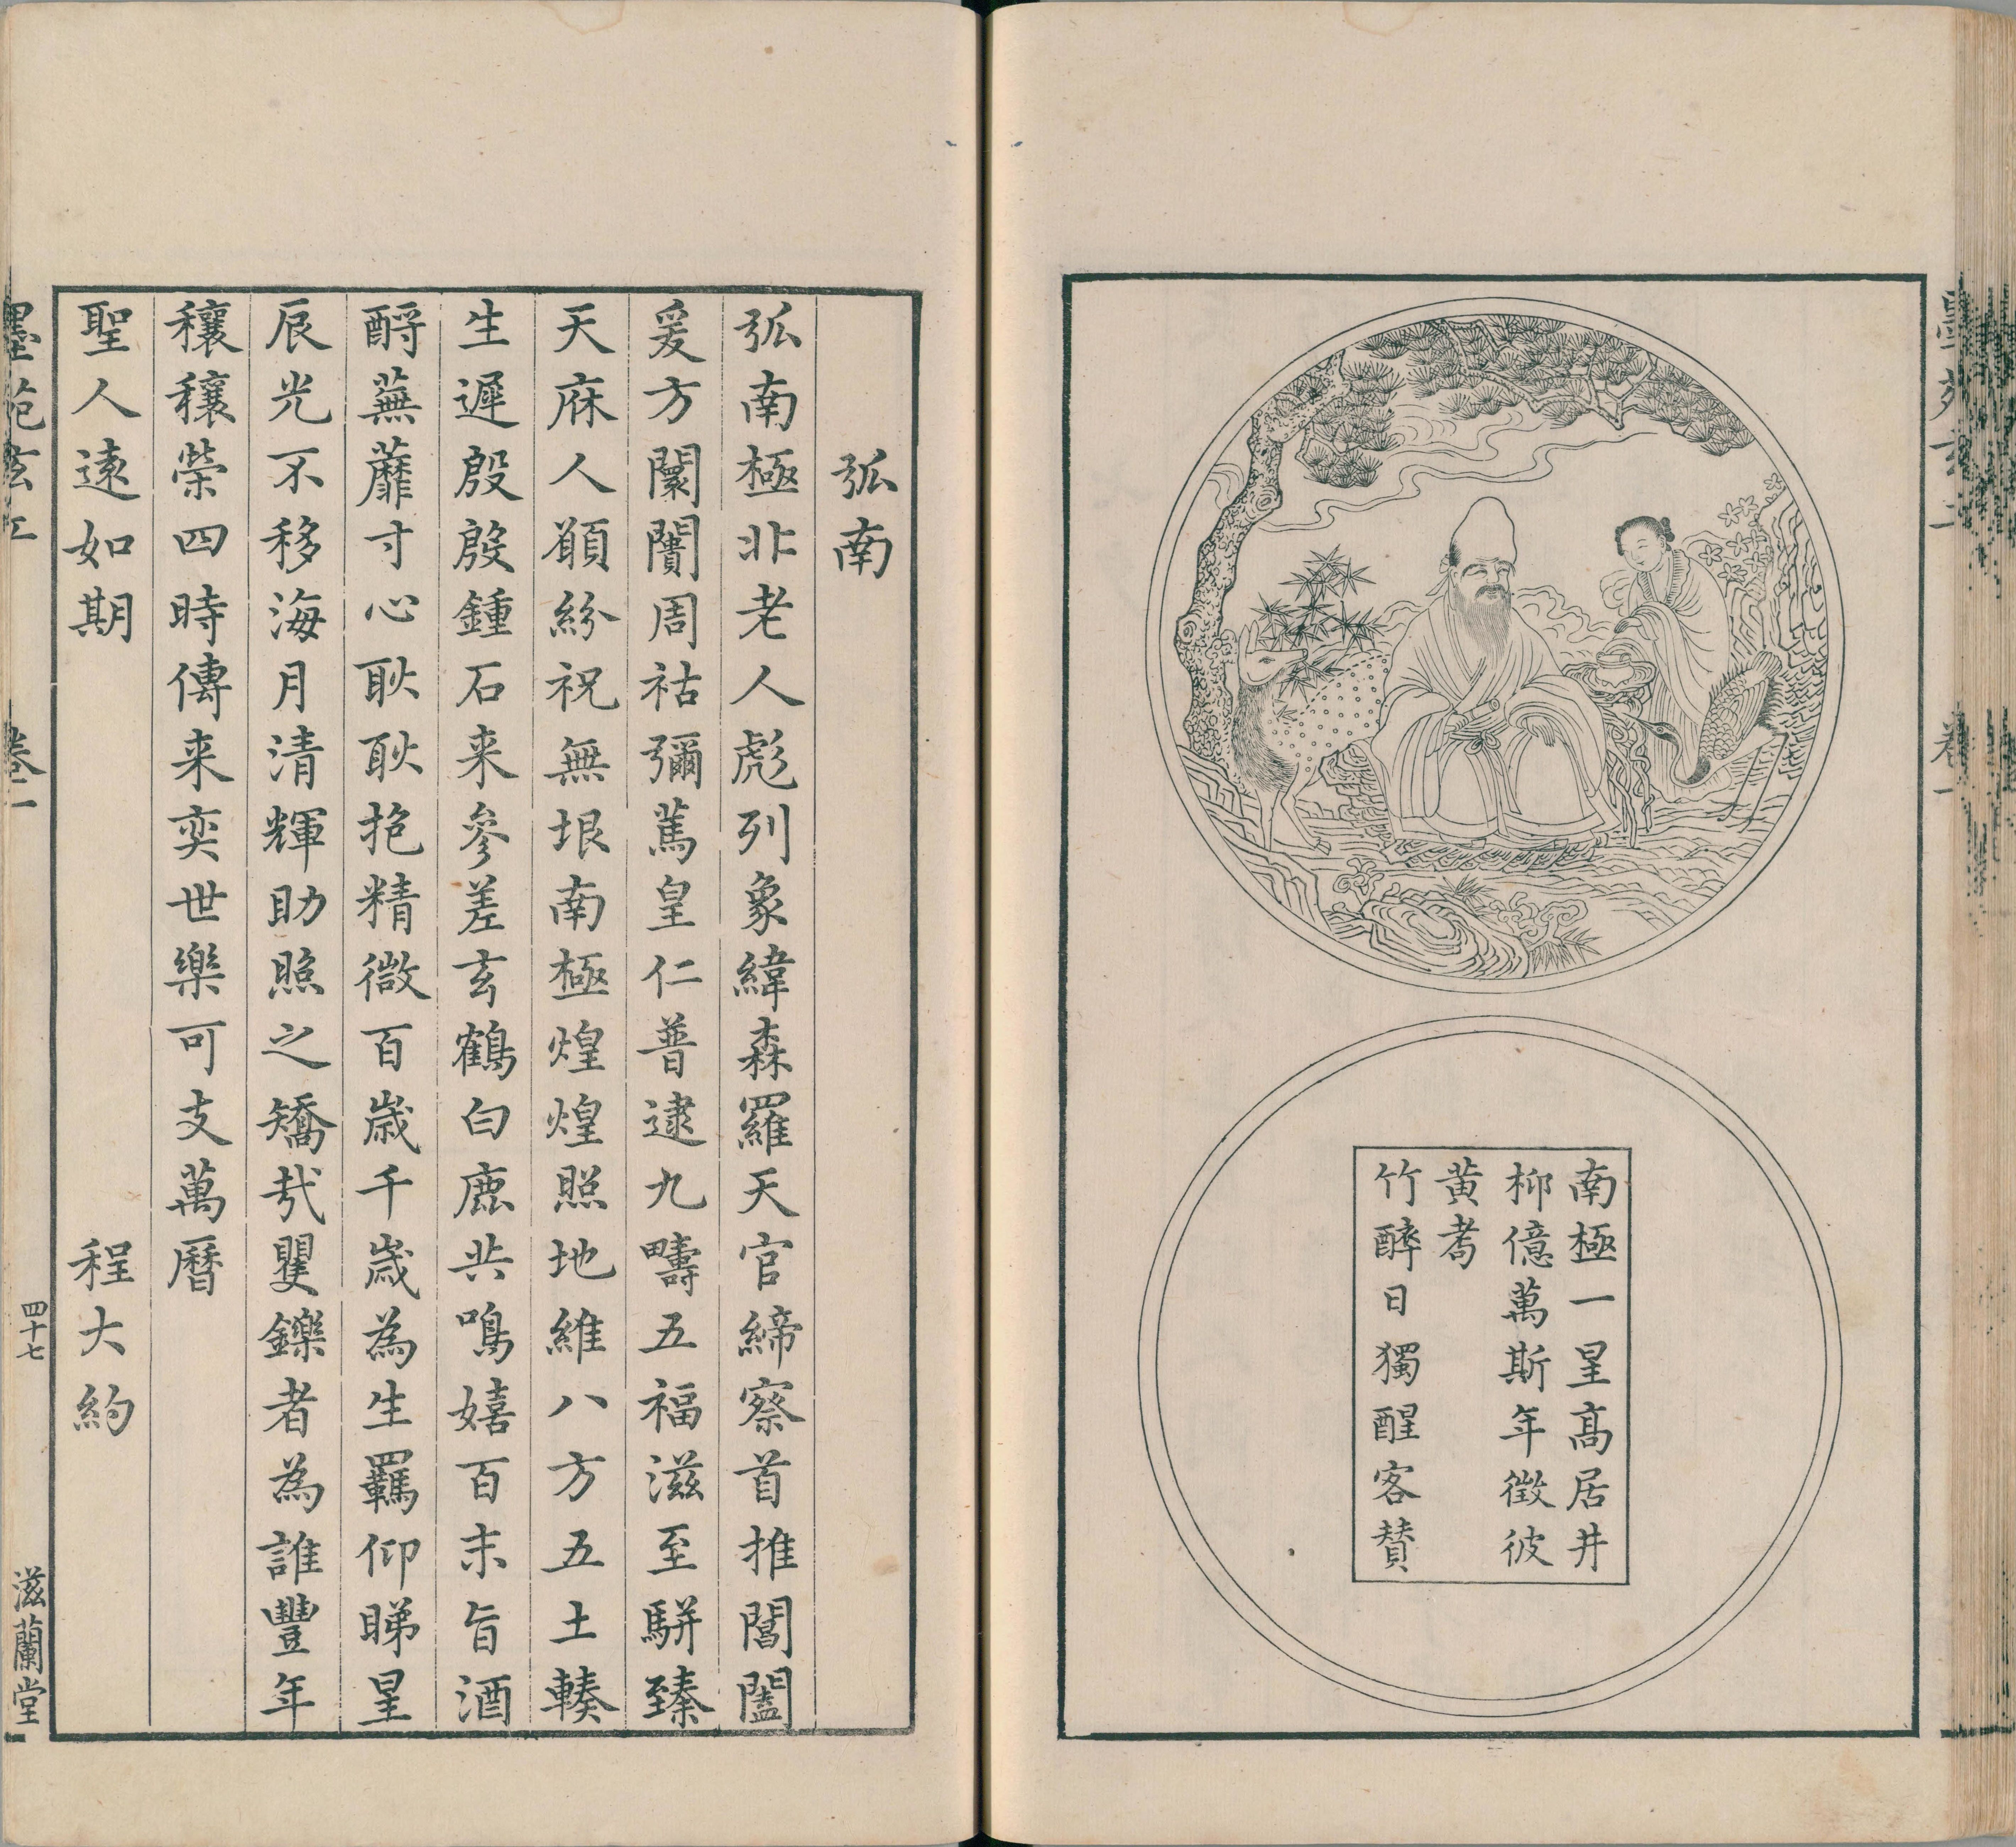 南極一星高居井
柳億萬斯年徴彼
黄耈
竹醉日獨醒客賛
弧南
弧南極非老人彪列象緯森羅天官締察首推閶闔
爰方闤闠周祜彌篤皇仁普逮九疇五福滋至駢臻
天庥人願紛祝無垠南極煌煌照地維八方五土轃
生遲殷殷鍾石来參差玄鶴白鹿共鳴嬉百末旨酒
酹蕪蘼寸心耿耿抱精微百歳千歳為生羈仰睇星
辰光不移海月清輝助照之矯㢤矍鑠者為誰豐年
穰穰榮四時傳来奕世樂可支萬曆
聖人遠如期
程大約
卷一
四十七
滋蘭堂